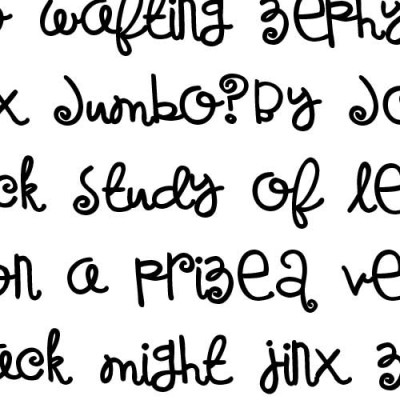 wafting zephy
x Jumbo? By Jo
ck study of le
on a prizea ve
ack might jinx z